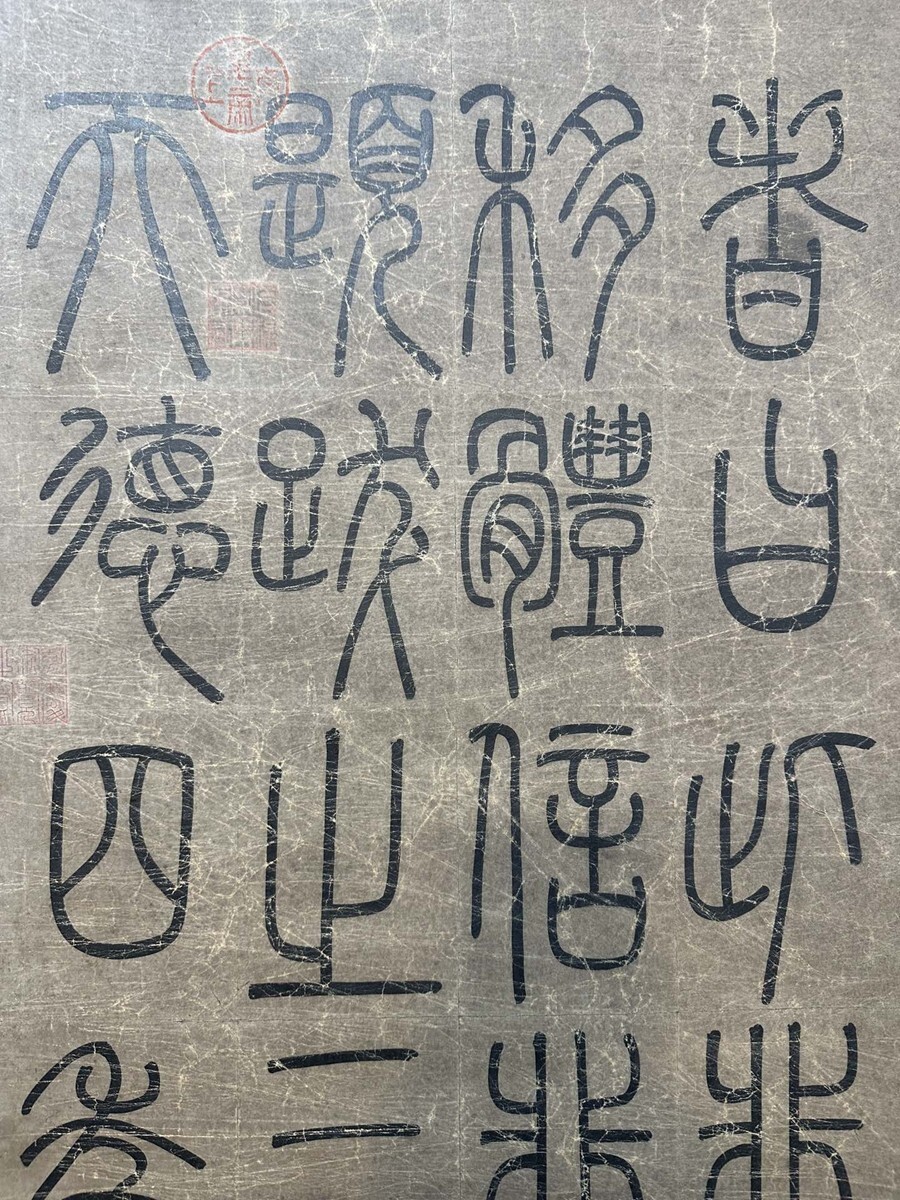 者曰此非
移體信非
題跋之二
天德四